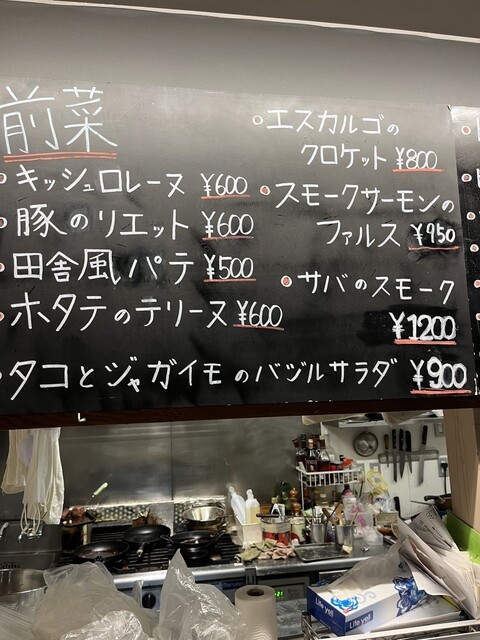 前菜
キッシュロレーヌ ¥600
豚のリエット ¥600
田舎風パテ ¥500
ホタテのテリーヌ ¥600
エスカルゴの
クロケット ¥800
スモークサーモンの
ファルス ¥950
サバのスモーク
¥1200
タコとジャガイモのバジルサラダ ¥900
Life yell
Life yell